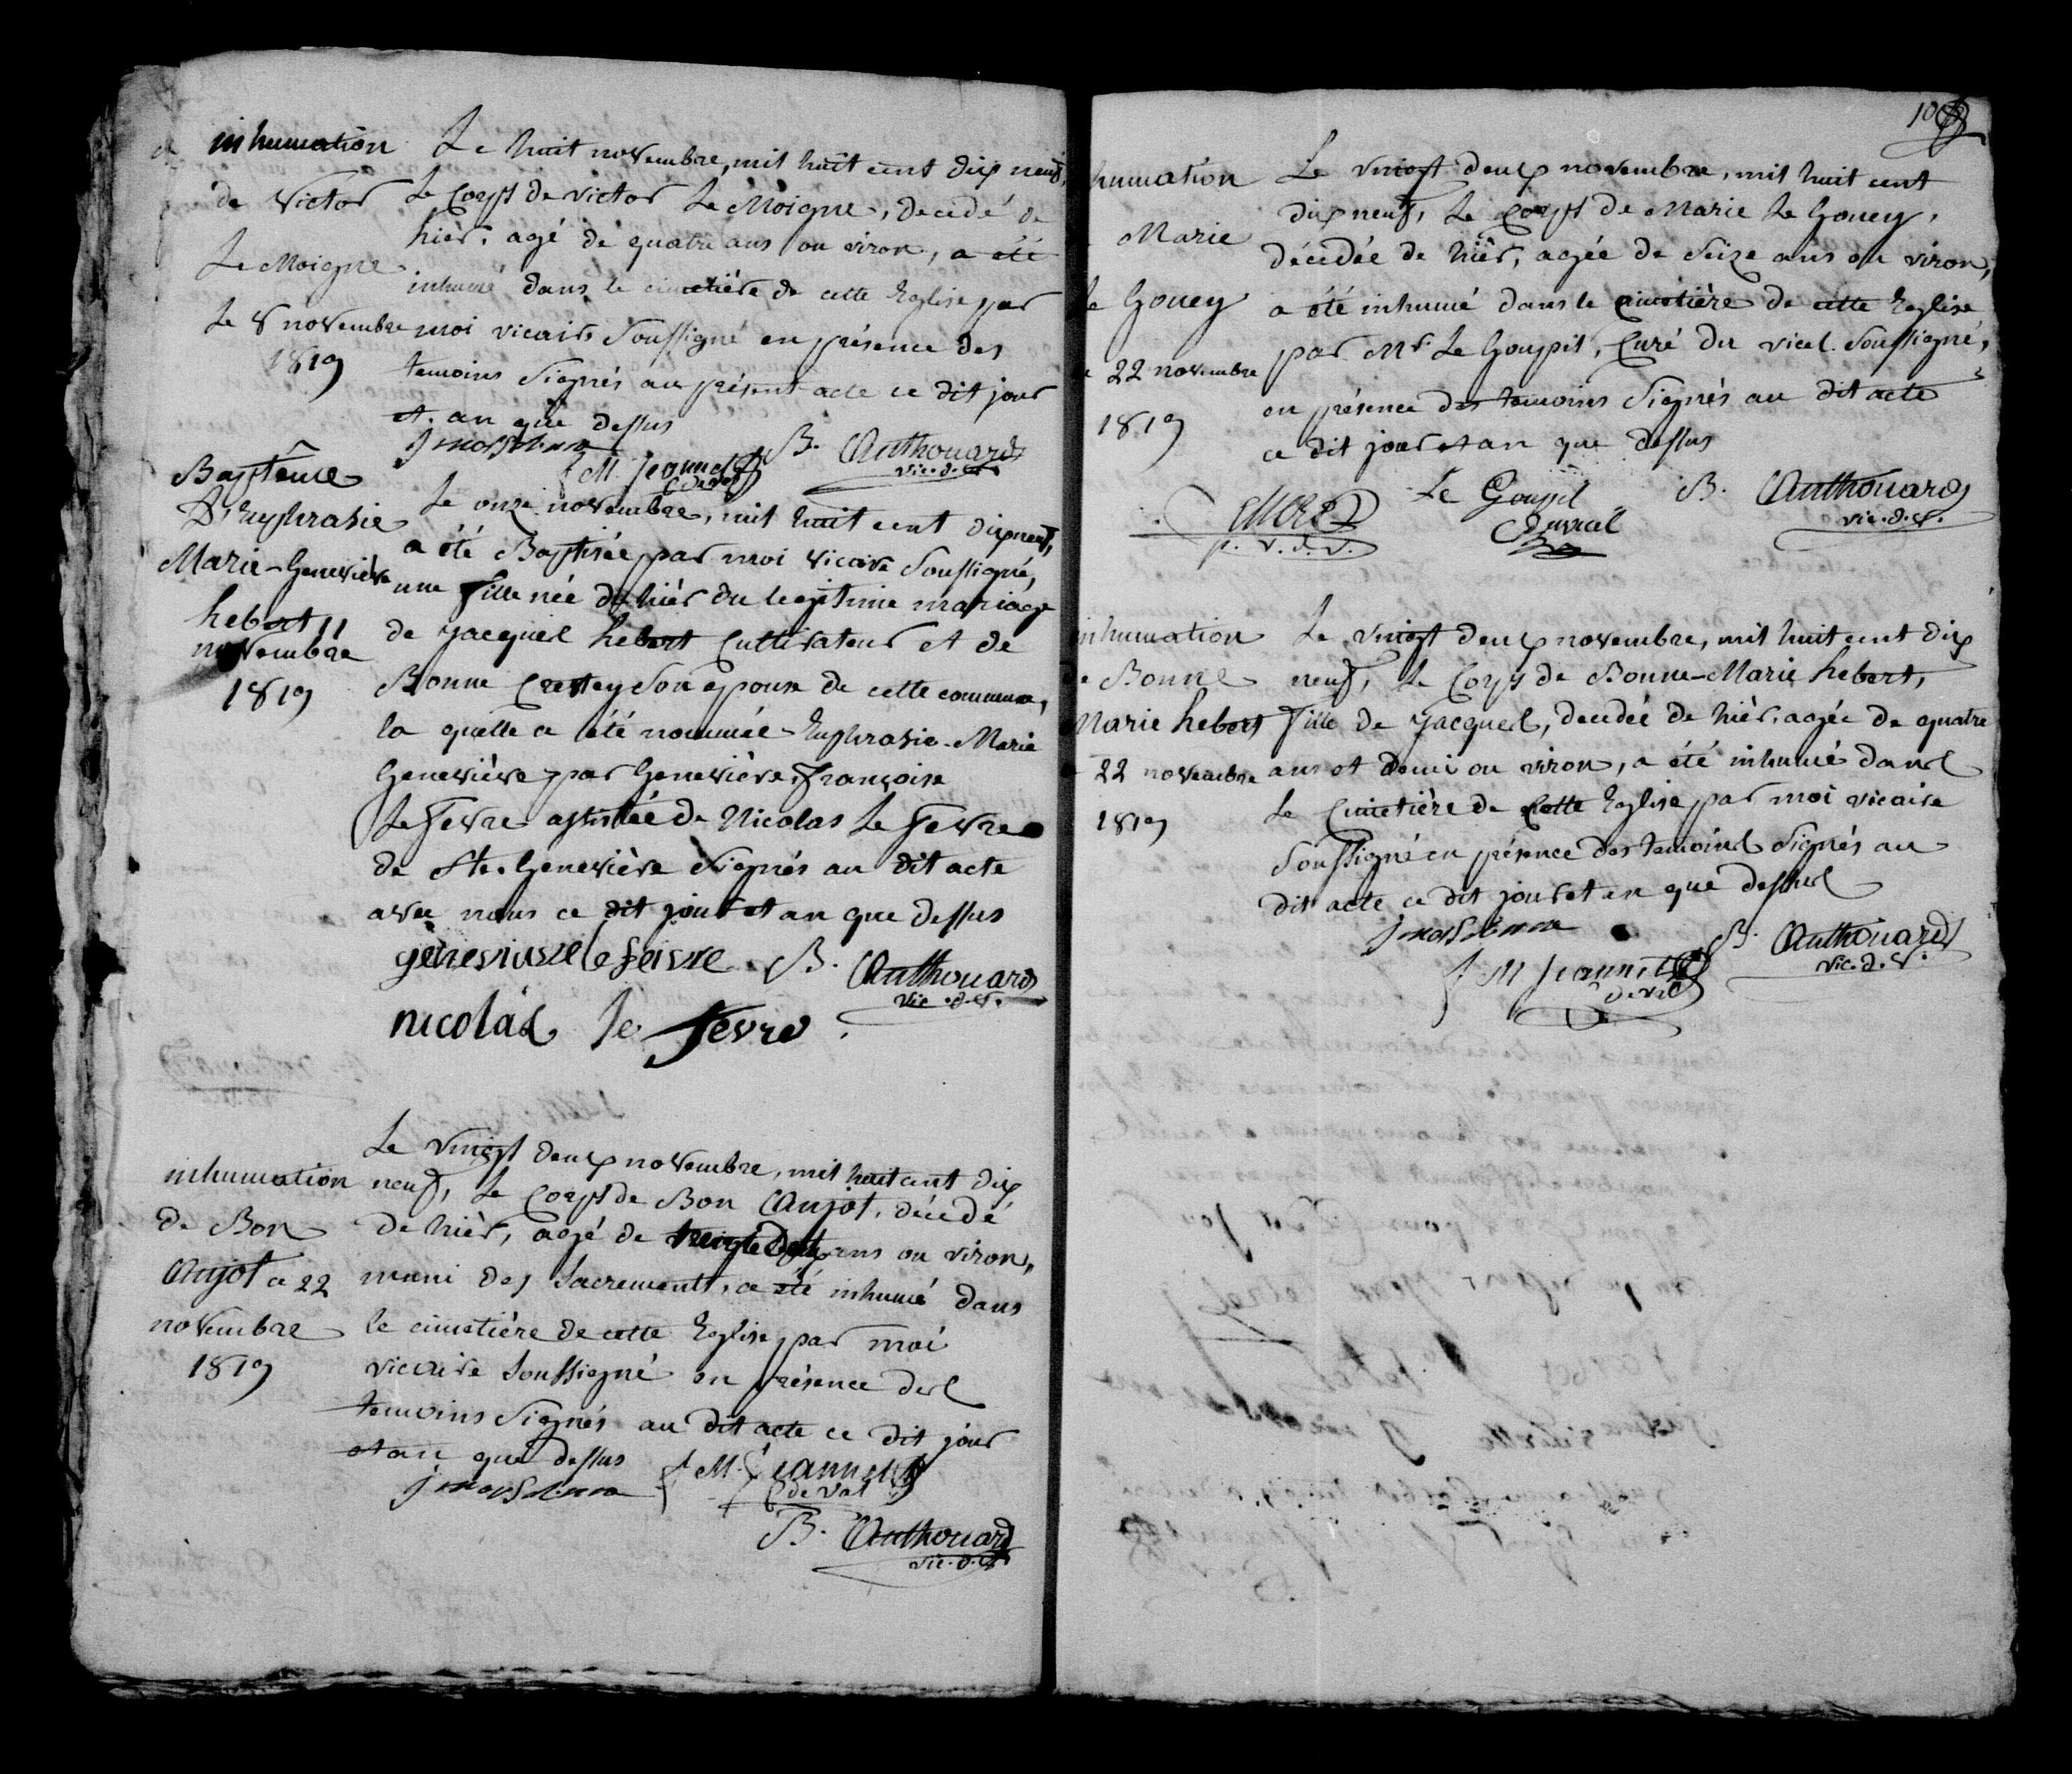 inhumation
de Victor
Le Moigne
Le 8 novembre
1819
Le huit novembre, mil huit cent dix neuf,
Le Corps de Victor Le Moigne, decedé de
hièr, agé de quatre ans ou viron, a été
inhumé dans le cimetière de cette Eglise par
moi vicaire Soussigné en présence des
temoins Signés au présent acte ce dit jour
et an que dessus
M. Jeannet
B. Anthouard
vic. d. V.
Baptême
D'Euphrasie
Marie-Geneviève
hebert 11
novembre
1819
Le onze novembre, mil huit cent dix neuf,
a été Baptisée par moi vicaire Soussigné,
une fille née de hièr du legitime mariage
de Jacques hebert Cultivateur et de
Bonne Crestey Son epouse de cette commune,
la quelle a été nommée Euphrasie-Marie
Geneviève par Geneviève, Françoise
Le Fevre assistée de Nicolas Le Fevre
de Ste. Geneviève Signés au dit acte
avec nous ce dit jour et an que dessus
genevieve le feivre B. Anthouard
vic. d. V.
nicolas le fevre
inhumation
de Bon
Anjot ce 22
novembre
1819
Le Vingt deux novembre, mil huit cent dix
neuf, Le Corps de Bon Anjot, décédé
de hièr, agé de ans ou viron,
muni des Sacrements, a été inhumé dans
le cimetière de cette Eglise par moi
vicaire Soussigné en présence des
temoins Signés au dit acte ce dit jour
et an que dessus
M. Jeannet
de Val
B. Anthouard
vic. d. V.
humation
Marie
Le Gouey
22 novembre
1819
Le vingt deux novembre, mil huit cent
dix neuf, Le Corps de Marie Le Gouey,
décédée de hièr, agée de Seize ans ou viron,
a été inhumé dans le cimetière de cette Eglise
par Mr. Le Goupil, Curé du vicel Soussigné,
en présence des temoins Signés au dit acte
ce dit jour et an que dessus
Le Goupil
B. Anthouard
vic. d. V.
p. v. d. v.
inhumation
de Bonne
Marie hebert
22 novembre
1819
Le vingt deux novembre, mil huit cent dix
neuf, Le Corps de Bonne-Marie hebert,
fille de Jacques, decedée de hièr, agée de quatre
ans et demi ou viron, a été inhumé dans
Le Cimetière de Cette Eglise par moi vicaire
Soussigné en présence des temoins Signés au
dit acte ce dit jour et an que dessus
M Jeannet
de Val
B. Anthouard
vic. d. V.